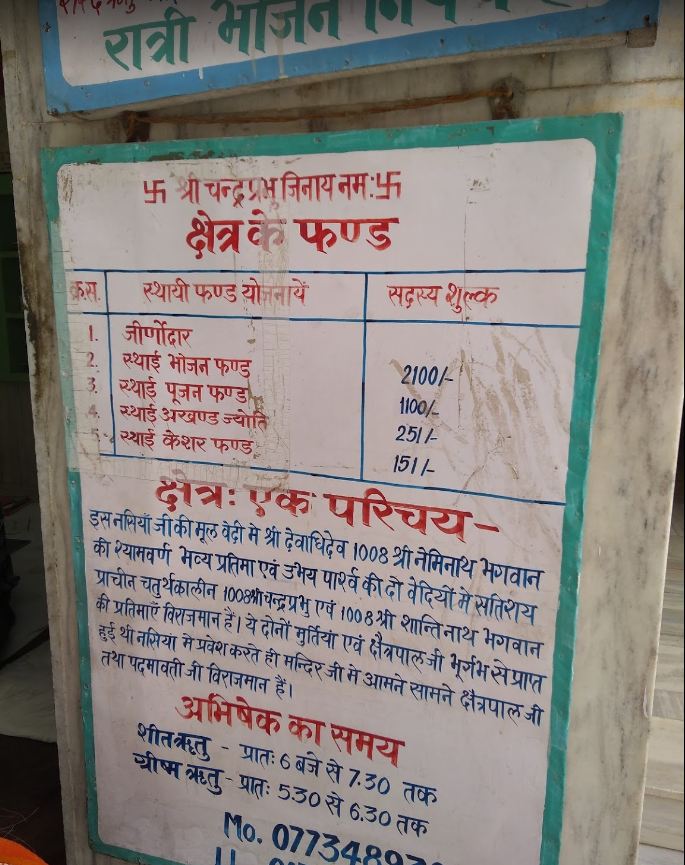 रात्री भोजन
卐 श्री चन्द्रप्रभु जिनाय नमः 卐
क्षेत्र के फण्ड
क्र.स. स्थायी फण्ड योजनायें सदस्य शुल्क
1. जीर्णोदार
2. स्थाई भोजन फण्ड 2100/-
3. स्थाई पूजन फण्ड 1100/-
4. स्थाई अखण्ड ज्योति 251/-
5. स्थाई केशर फण्ड 151/-
क्षेत्र: एक परिचय -
इस नसियाँ जी की मूल वेदी मे श्री देवाधिदेव 1008 श्री नेमिनाथ भगवान
की श्यामवर्ण भव्य प्रतिमा एवं उभय पार्श्व की दो वेदियों में सतिशय
प्राचीन चतुर्थकालीन 1008 श्री चन्द्रप्रभु एवं 1008 श्री शान्तिनाथ भगवान
की प्रतिमाएँ विराजमान हैं। ये दोनों मुर्तिया एवं क्षैत्रपाल जी भूर्गभ से प्राप्त
हुई थी नसियां मे प्रवेश करते ही मन्दिर जी मे आमने सामने क्षैत्रपाल जी
तथा पदमावती जी विराजमान हैं।
अभिषेक का समय
शीतऋतु - प्रातः 6 बजे से 7.30 तक
ग्रीष्म ऋतु - प्रातः 5.30 से 6.30 तक
Mo. 07734897